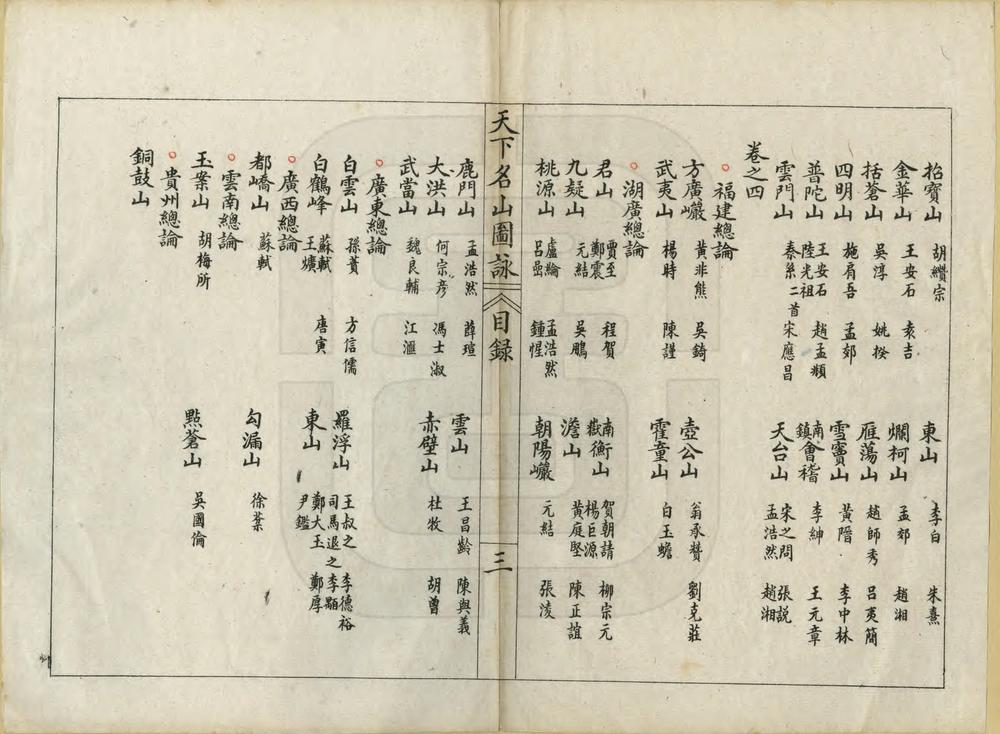 招寶山 胡纘宗 東山 李白 朱熹
金華山 王安石 袁吉 爛柯山 孟郊 趙湘
括蒼山 吳淳 姚揆 雁蕩山 趙師秀 呂夷簡
四明山 施肩吾 孟郊 雪竇山 黃㬜 李中林
普陀山 王安石 陸光祖 趙孟頫 南鎮會稽 李紳 王元章
雲門山 秦系二首 宋應昌 天台山 宋之問 孟浩然 張說 趙湘
卷之四
福建總論
方廣巖 黃非熊 吳錡 壺公山 翁承贊 劉克莊
武夷山 楊時 陳謹 霍童山 白玉蟾
湖廣總論
君山 賈至 鄭震 程賀 南嶽衡山 賀朝請 楊巨源 柳宗元
九嶷山 元結 吳鵬 澹山 黃庭堅 陳正誼
桃源山 盧綸 呂喦 孟浩然 鍾惺 朝陽巖 元結 張淩
天下名山圖詠 目録 三
鹿門山 孟浩然 薛瑄 雲山 王昌齡 陳與義
大洪山 何宗彥 馮士淑 赤壁山 杜牧 胡曾
武當山 魏良輔 江滙
廣東總論
白雲山 孫蕡 方信儒 羅浮山 王叔之 司馬退之 李德裕 李顒
白鶴峰 蘇軾 王爌 唐寅 東山 鄭大玉 尹鑑 鄭厚
廣西總論
都嶠山 蘇軾 勾漏山 徐棻
雲南總論
玉案山 胡梅所 點蒼山 吳國倫
貴州總論
銅鼓山